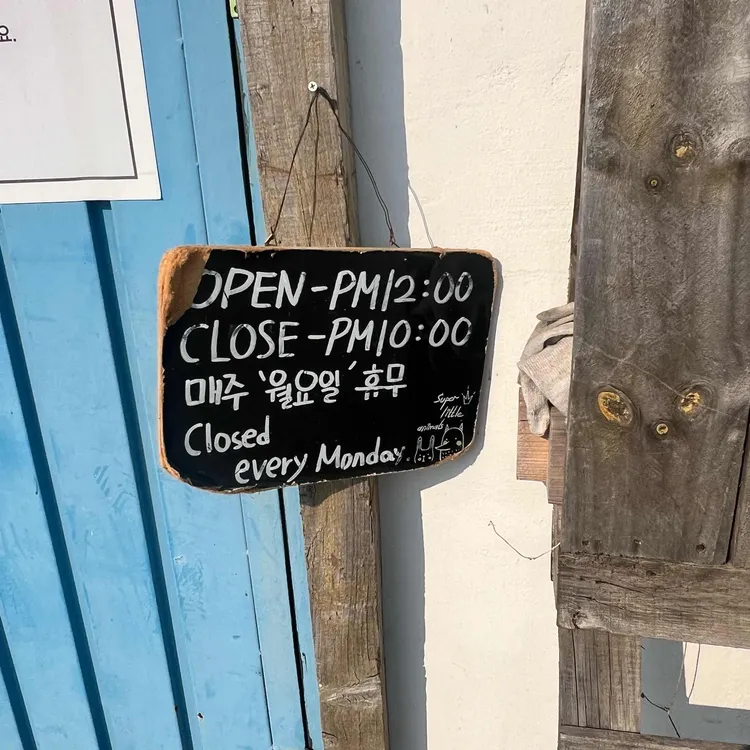 요.
OPEN-PM12:00
CLOSE-PM10:00
매주 '월요일' 휴무
Closed
every Monday.
Super
little
animals